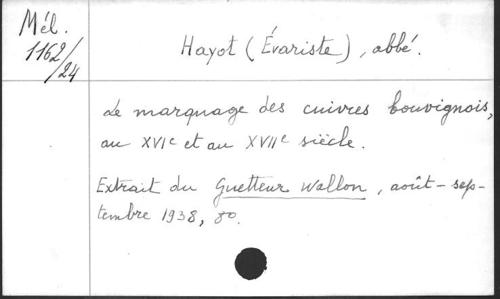 Mél.
1162/24
Hayot (Évariste), abbé.
Le marquage des cuivres bouvignois,
au XVIe et au XVIIe siècle.
Extrait du Guetteur Wallon, août-sep-
tembre 1938, 8o.